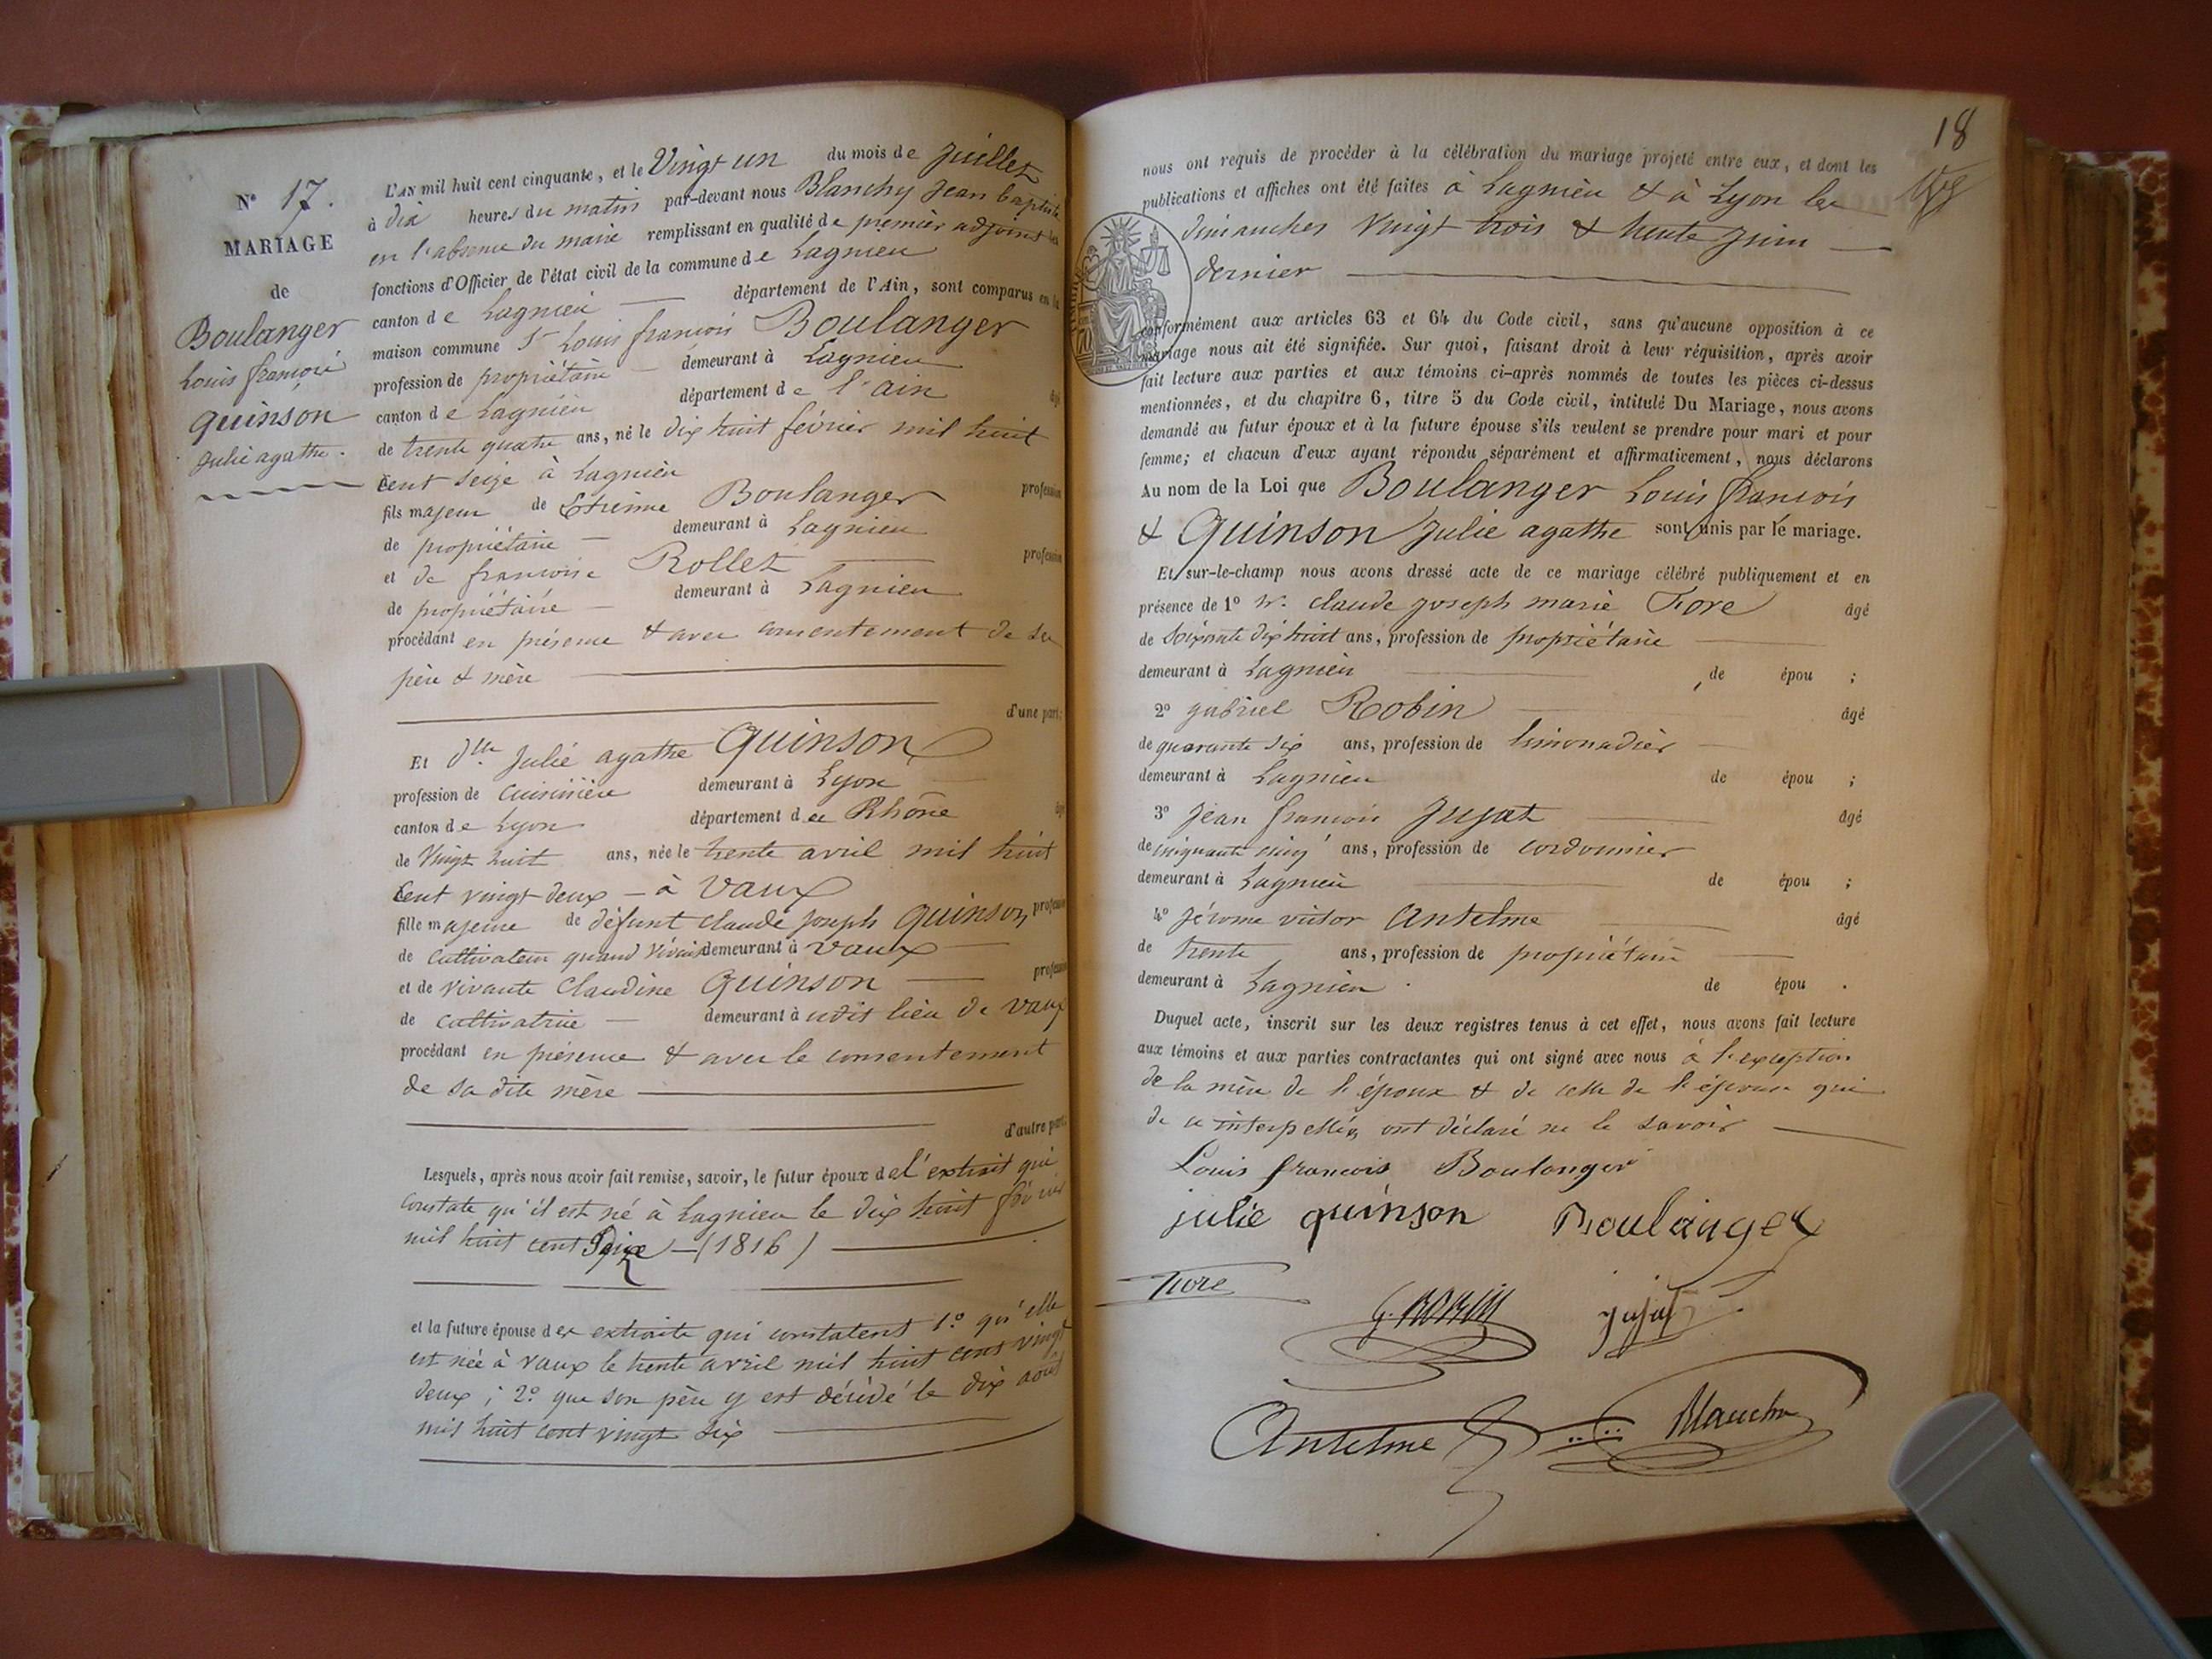 N° 17.
MARIAGE
de
Boulanger
Louis françois
quinson
Julie agathe.
L'AN mil huit cent cinquante, et le Vingt un du mois de Juillet
à dix heures du matin par-devant nous Blanchy Jean baptiste
en l'absence du maire remplissant en qualité de premier adjoint les
fonctions d'Officier de l'état civil de la commune de Lagnieu
canton de Lagnieu département de l'Ain, sont comparus en la
maison commune Sr Louis françois Boulanger
profession de propriétaire demeurant à Lagnieu
canton de Lagnieu département de l'ain âgé
de trente quatre ans, né le dix huit février mil huit
cent seize à Lagnieu
fils majeur de Etienne Boulanger profession
de propriétaire demeurant à Lagnieu
et de francoise Rollet profession
de propriétaire demeurant à Lagnieu
procédant en présence & avec consentement de ses
père & mère
d'une part;
Et dlle Julie agathe quinson
profession de cuisinière demeurant à Lyon
canton de Lyon département du Rhône âgée
de Vingt huit ans, née le trente avril mil huit
cent vingt deux – à Vaux
fille majeure de défunt Claude Joseph quinson profession
de cultivateur quand vivait demeurant à Vaux
et de vivante Claudine quinson profession
de cultivatrice demeurant à udit lieu de Vaux
procédant en présence & avec le consentement
de sa dite mère
d'autre part.
Lesquels, après nous avoir fait remise, savoir, le futur époux de l'extrait qui
constate qu'il est né à Lagnieu le dix huit février
mil huit cent Seize – (1816)
et la future épouse des extraits qui constatent 1° qu'elle
est née à vaux le trente avril mil huit cent vingt
deux; 2° que son père y est décédé le dix août
mil huit cent vingt six
18
nous ont requis de procéder à la célébration du mariage projeté entre eux, et dont les
publications et affiches ont été faites à Lagnieu & à Lyon les
dimanches vingt trois & trente juin
dernier
conformément aux articles 63 et 64 du Code civil, sans qu'aucune opposition à ce
mariage nous ait été signifiée. Sur quoi, faisant droit à leur réquisition, après avoir
fait lecture aux parties et aux témoins ci-après nommés de toutes les pièces ci-dessus
mentionnées, et du chapitre 6, titre 5 du Code civil, intitulé Du Mariage, nous avons
demandé au futur époux et à la future épouse s'ils veulent se prendre pour mari et pour
femme; et chacun d'eux ayant répondu séparément et affirmativement, nous déclarons
Au nom de la Loi que Boulanger Louis françois
& Quinson Julie agathe sont unis par le mariage.
Et sur-le-champ nous avons dressé acte de ce mariage célébré publiquement et en
présence de 1° Mr. Claude Joseph marie Fiore âgé
de soixante dix huit ans, profession de propriétaire
demeurant à Lagnieu de épou ;
2° gabriel Robin âgé
de quarante six ans, profession de limonadier
demeurant à Lagnieu de épou ;
3° Jean francois Jujat âgé
de cinquante cinq ans, profession de cordonnier
demeurant à Lagnieu de épou ;
4° Jérome victor Antelme âgé
de trente ans, profession de propriétaire
demeurant à Lagnieu de épou .
Duquel acte, inscrit sur les deux registres tenus à cet effet, nous avons fait lecture
aux témoins et aux parties contractantes qui ont signé avec nous à l'exception
de la mère de l'époux & de celle de l'épouse qui
de ce interpellées ont déclaré ne le savoir
Louis francois Boulanger
julie quinson Boulanger
Fiore
G. ROBIN jujat
Antelme Blanchy